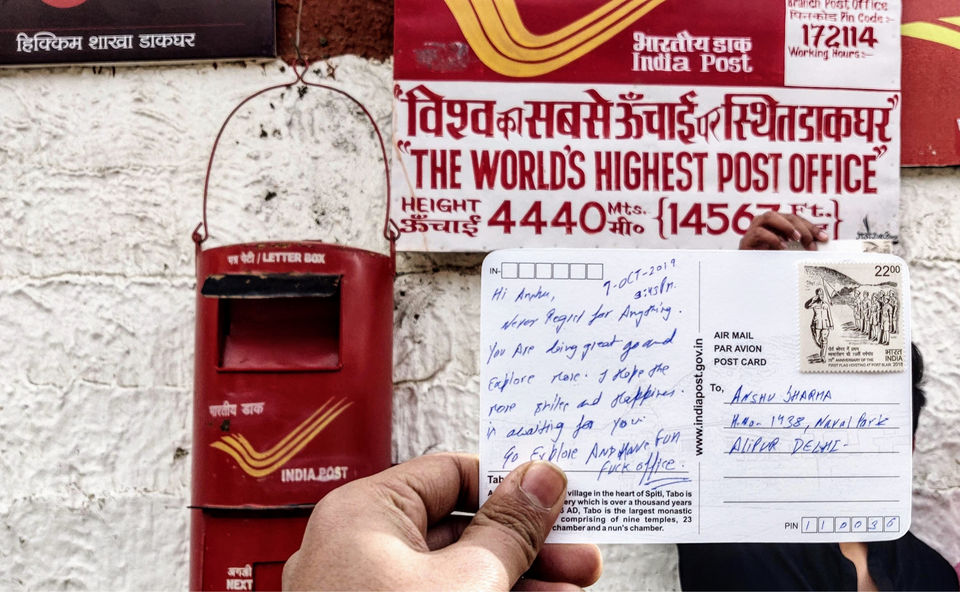 हिक्किम शाखा डाकघर
भारतीय डाक
India Post
Branch Post Office
पिनकोड Pin Code :-
172114
Working Hours:-
"विश्व का सबसे ऊँचाई पर स्थित डाकघर"
"THE WORLD'S HIGHEST POST OFFICE"
HEIGHT 4440 Mts. {14567 Ft.
ऊँचाई मी०
पत्र पेटी / LETTER BOX
भारतीय डाक
INDIA POST
अगली
NEXT
IN-
7-OCT-2019
3:45 Pm.
Hi Anshu,
Never Regret for Anything.
You Are doing great go and
Explore More. I Hope the
more smiles and Happiness.
is awaiting for you.
Go Explore And Have fun
fuck office.
Tab
village in the heart of Spiti, Tabo is
ery which is over a thousand years
AD, Tabo is the largest monastic
comprising of nine temples, 23
chamber and a nun's chamber.
www.indiapost.gov.in
2200
भारत
INDIA
FIRST FLAG HOSTING AT PORT BLAIR 2018
AIR MAIL
PAR AVION
POST CARD
To,
ANSHU SHARMA
H.No- 1438, Naval Park
ALIPUR DELHI-
PIN 110036